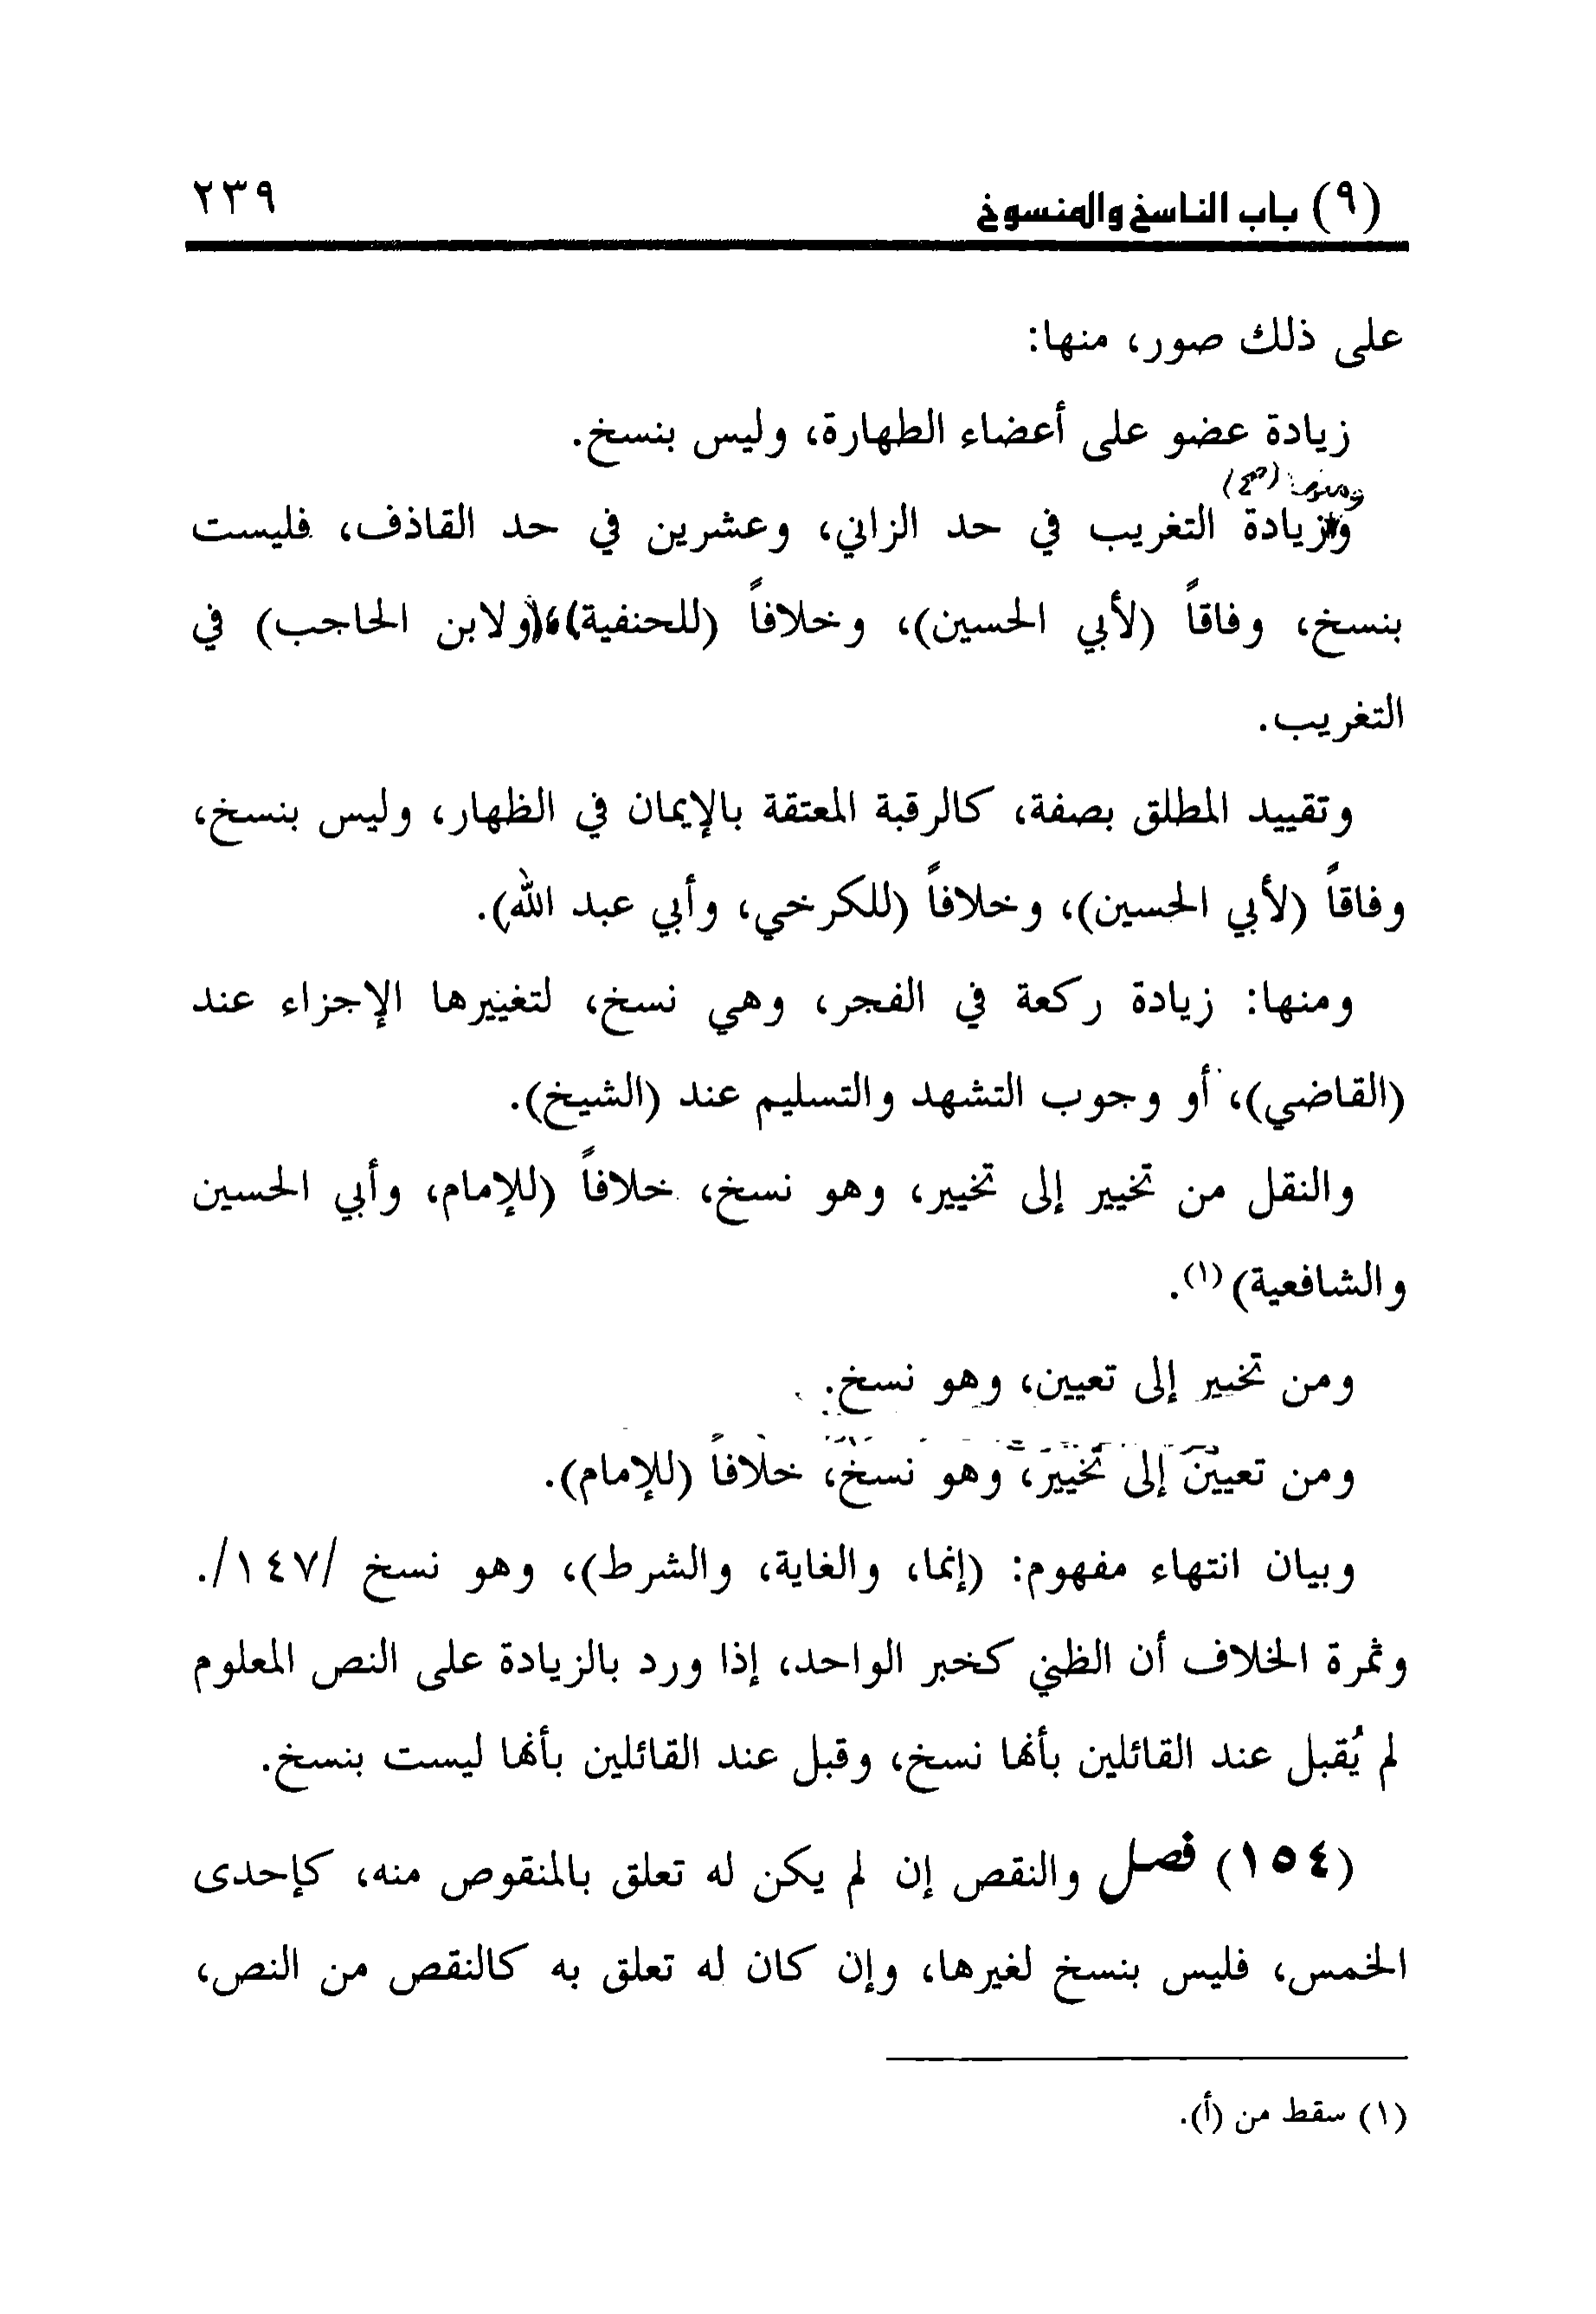 (٩) باب الناسخ والمنسوخ ٢٣٩
على ذلك صور، منها:
زيادة عضو على أعضاء الطهارة، وليس بنسخ.
ومنها (صح)
وزيادة التغريب في حد الزاني، وعشرين في حد القاذف، فليست
بنسخ، وفاقاً (لأبي الحسين)، وخلافاً (للحنفية)، (ولابن الحاجب) في
التغريب.
وتقييد المطلق بصفة، كالرقبة المعتقة بالإيمان في الظهار، وليس بنسخ،
وفاقاً (لأبي الحسين)، وخلافاً (للكرخي، وأبي عبد الله).
ومنها: زيادة ركعة في الفجر، وهي نسخ، لتغييرها الإجزاء عند
(القاضي)، أو وجوب التشهد والتسليم عند (الشيخ).
والنقل من تخيير إلى تخيير، وهو نسخ، خلافاً (للإمام، وأبي الحسين
والشافعية)(١).
ومن تخيير إلى تعيين، وهو نسخ.
ومن تعيين إلى تخيير، وهو نسخ، خلافاً (للإمام).
وبيان انتهاء مفهوم: (إنما، والغاية، والشرط)، وهو نسخ /١٤٧/.
وثمرة الخلاف أن الظني كخبر الواحد، إذا ورد بالزيادة على النص المعلوم
لم يُقبل عند القائلين بأنها نسخ، وقبل عند القائلين بأنها ليست بنسخ.
(١٥٤) فصل والنقص إن لم يكن له تعلق بالمنقوص منه، كإحدى
الخمس، فليس بنسخ لغيرها، وإن كان له تعلق به كالنقص من النص،
(١) سقط من (أ).